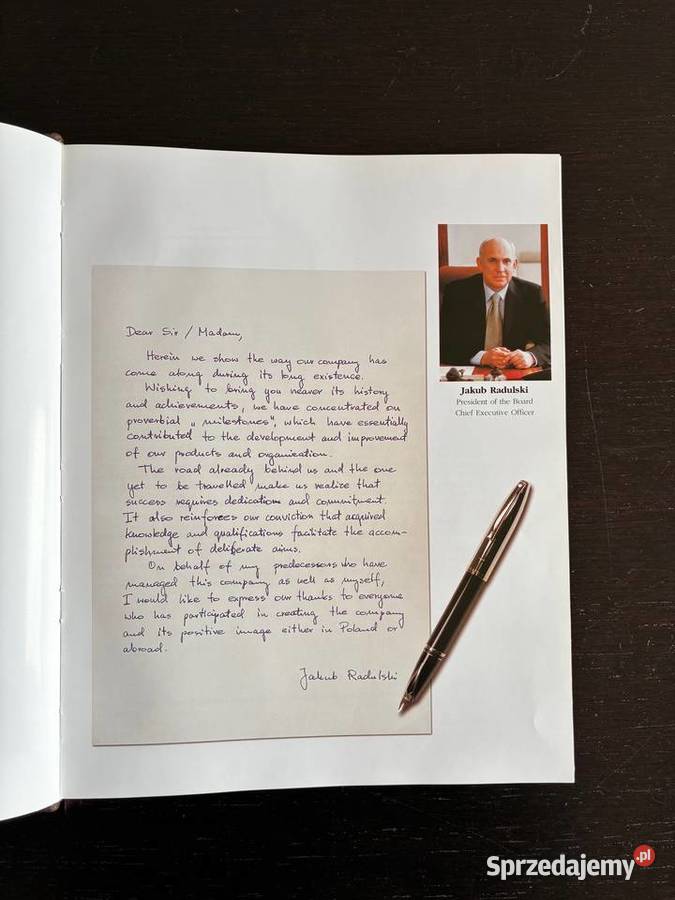 Dear Sir / Madam,
Herein we show the way our company has
come along during its long existence.
Wishing to bring you nearer its history
and achievements, we have concentrated on
proverbial „milestones", which have essentially
contributed to the development and improvement
of our products and organization.
The road already behind us and the one
yet to be travelled make us realize that
success requires dedication and commitment.
It also reinforces our conviction that acquired
knowledge and qualifications facilitate the accom-
plishment of deliberate aims.
On behalf of my predecessors who have
managed this company as well as myself,
I would like to express our thanks to everyone
who has participated in creating the company
and its positive image either in Poland or
abroad.
Jakub Radulski
Jakub Radulski
President of the Board
Chief Executive Officer
Sprzedajemy.pl